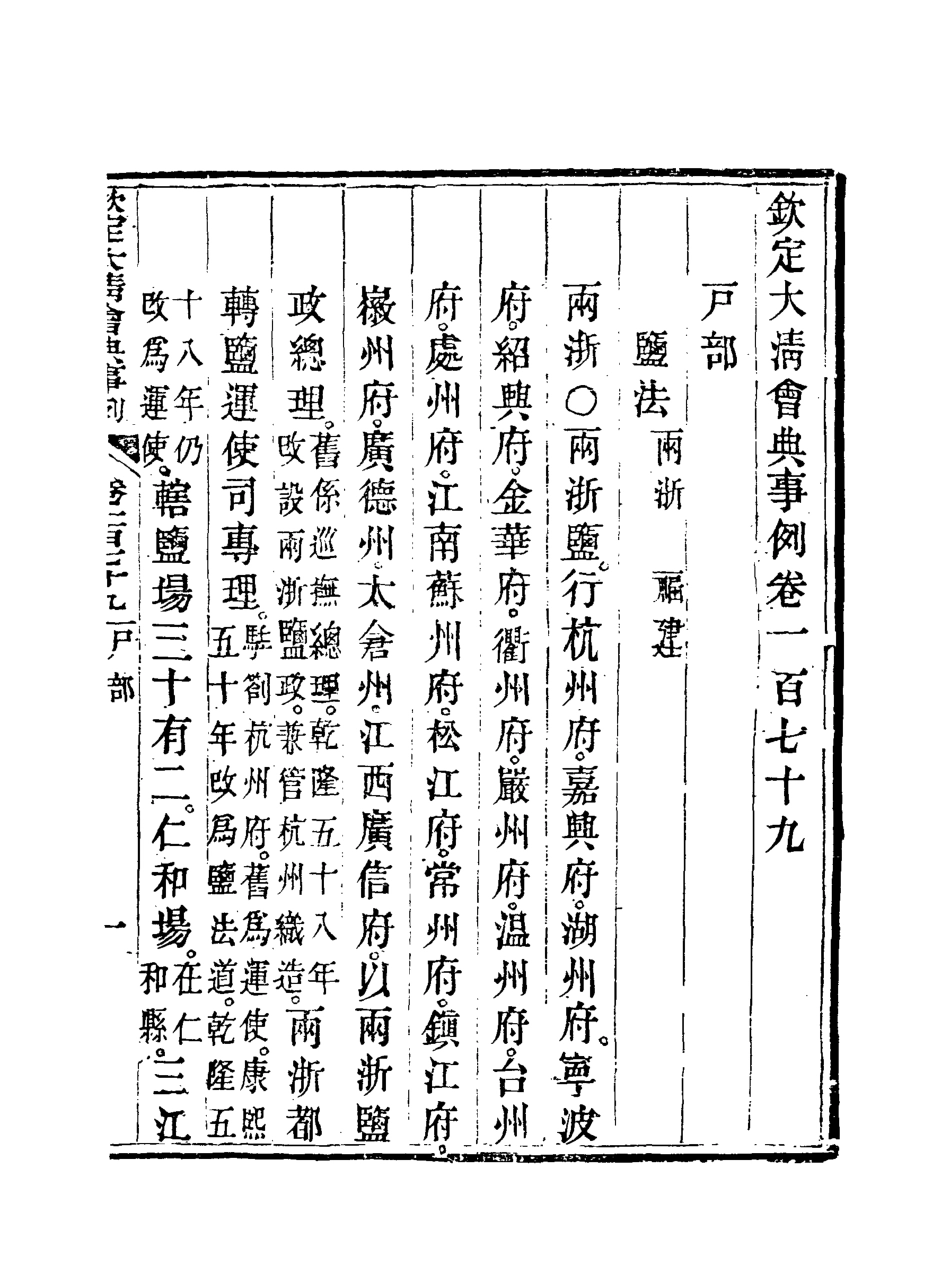 欽定大清會典事例卷一百七十九
戸部
鹽法 兩浙 福建
兩浙○兩浙鹽。行杭州府。嘉興府。湖州府。寧波
府。紹興府。金華府。衢州府。嚴州府。温州府。台州
府。處州府。江南蘇州府。松江府。常州府。鎮江府。
徽州府。廣德州。太倉州。江西廣信府。以兩浙鹽
政總理。舊係巡撫總理。乾隆五十八年改設兩浙鹽政。兼管杭州織造。兩浙都
轉鹽運使司專理。駐劄杭州府。舊爲運使。康熙五十年改爲鹽法道。乾隆五
十八年仍改爲運使。轄鹽場三十有二。仁和場。在仁和縣。三江
欽定大清會典事例 卷一百七十九 戸部 一